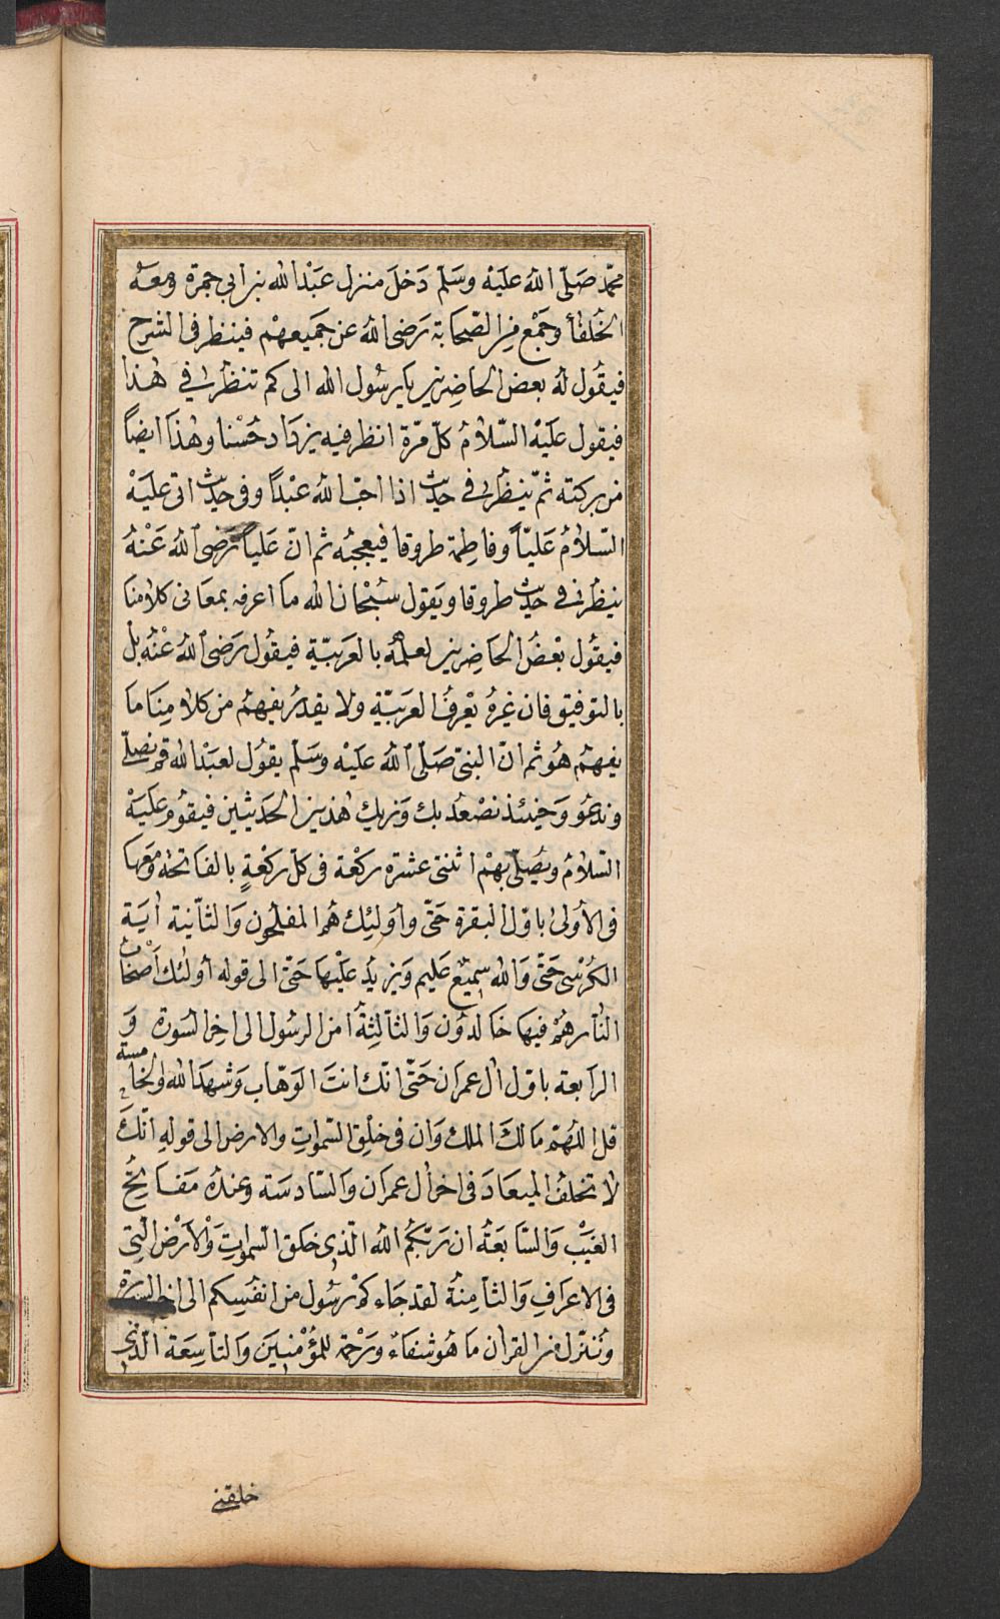 محمّد صَلّى اللهُ عَليْه وسَلّم دَخلَ منزل عَبْدالله بن ابي جمرة ومعَهُ
الخُلفأ وجَمْع مِن الصّحابة رَضى اللهُ عن جَميعهمْ فينظر فى الشرح
فيقُول لهُ بعض الحاضِرين يا رسُول الله الى كم تنظر فى هٰذا
فيقول عَليْه السّلامُ كلّ مرّة انظر فيه يزدَاد حُسْنا وهٰذا ايضاً
من بركته ثمّ ينظر فى حديث اذا احبّ اللهُ عبْداً وفى حديث اتى عليَهْ
السّلامُ عَليّاً وفاطِمة طروقا فيعجبُه ثم انّ عَلياً رَضى اللهُ عَنْهُ
ينظر فى حديث طروقا ويَقول سُبْحَان الله ما اعرفه بمعَانى كلامنا
فيقُول بعْضُ الحَاضِرين لعلمُه بالعَربيّة فيقُول رَضى اللهُ عنْهُ بل
بالتوفيق فان غيرهُ يعْرفُ العَربيّة ولا يقدرُ يفهمُ من كلامِنَا مَا
يفهمُ هُو ثم انّ النبىّ صَلّى اللهُ عَليْه وسَلّم يقوُل لعبْدالله قم نصلّى
وندعُو وَحينئذ نصْعدُ بك وَنريك هٰذين الحَديثين فيقُوم عَليَهْ
السّلامُ ويُصلّى بهمْ اثنتى عشرة ركْعة فى كلّ ركْعةٍ بالفاتحة وَمَعهَا
فى الأولى باوّل البقرة حَتّى وأوليٕك هُم المفلحُون وَالثاّنية أيَة
الكرْسى حَتّى وَالله سميْعٌ عَليم وَيزيدُ عَليْها حَتّى الى قوله أولئك أصْحَابُ
النّار همْ فيها خَالدوُن وَالثالِثة أمن الرسُول الى اخر السّورة وَ
الرابعة باوّل أل عمرَان حَتّى انّك انتَ الوَهّاب وَشهدَ الله والخامسة
قل اللهُمّ مَالكَ الملك وَان فى خلْق السّمٰواتِ والارض الى قولهِ انّكَ
لا تخلفُ الميعَادَ فى اخر أل عمرَان وَالسّادسَة وَعندهُ مَفاتِحُ
الغَيْب وَالسّابعَةُ ان رَبّكمُ الله الّذى خَلق السمٰواتِ وَالأرْض الّتى
فى الاعرَافِ وَالثامِنةُ لقد جَاءكمْ رسُول من انفُسِكم الى اخر السورة
وَننزّل من القرأن مَا هُو شفاءٌ ورَحْمة للمُؤْمنينَ وَالتاسِعَة الّذى
خلقنى